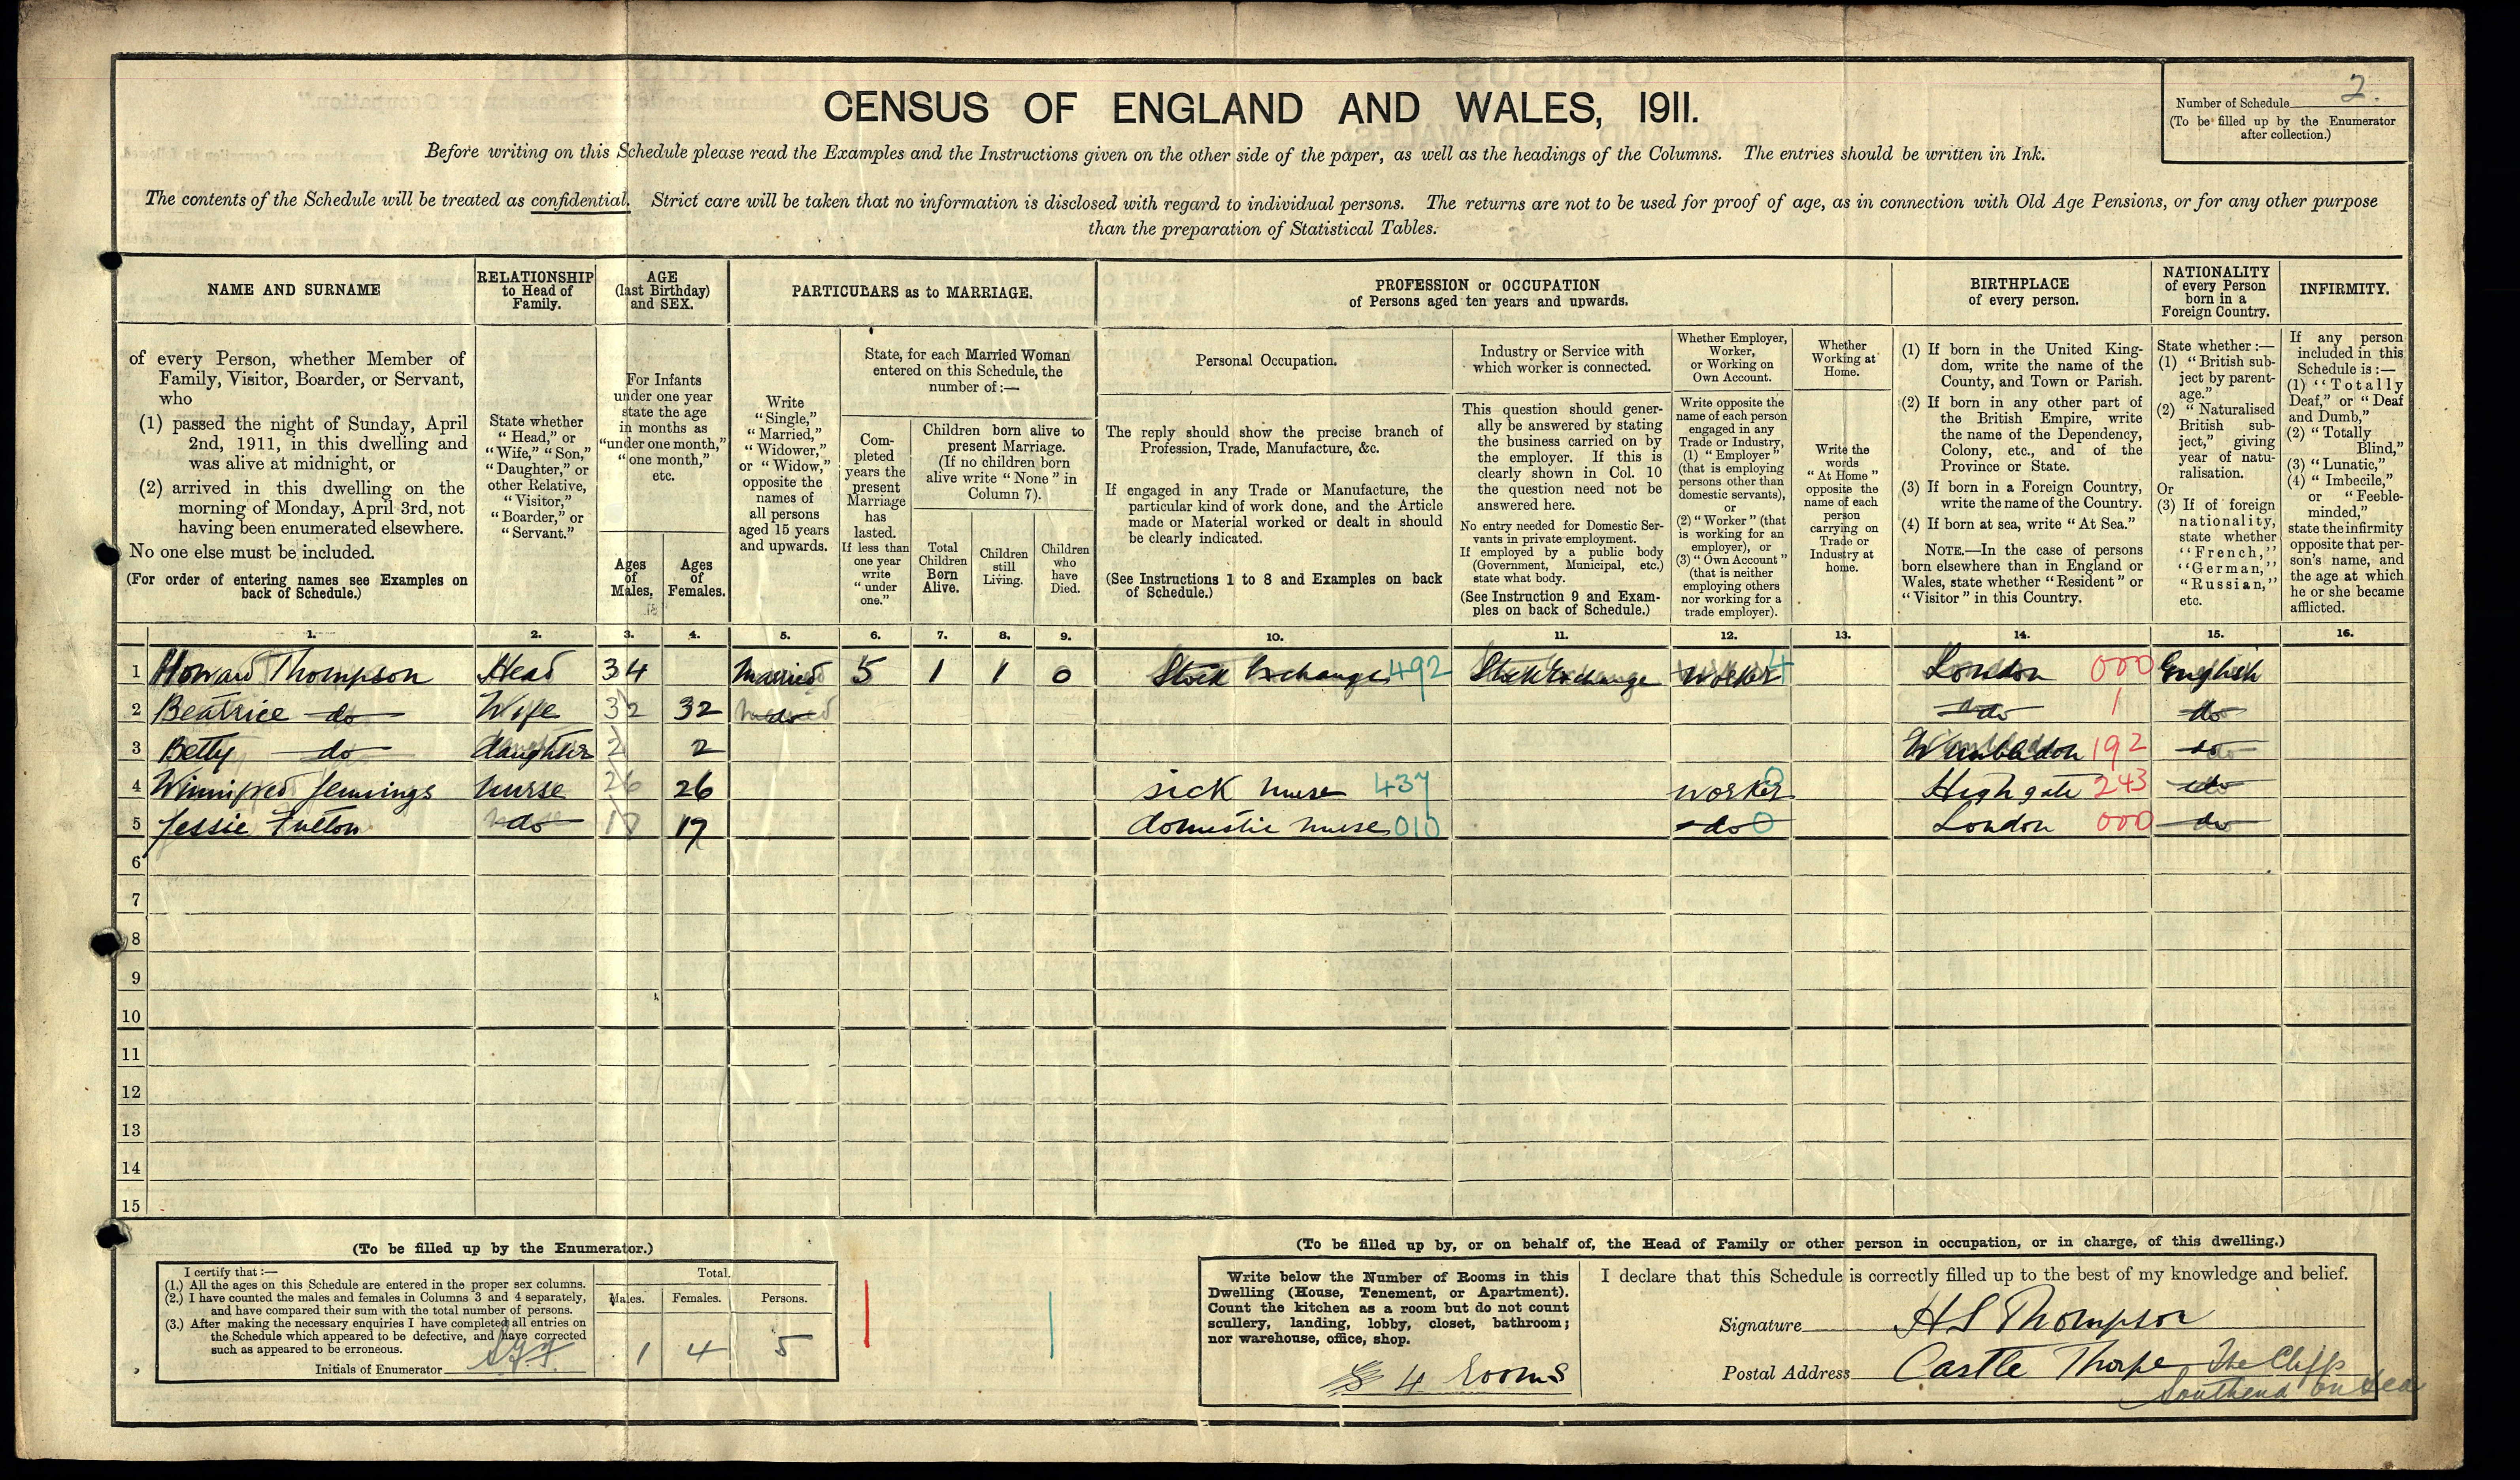 CENSUS OF ENGLAND AND WALES, 1911.
Number of Schedule 2.
(To be filled up by the Enumerator
after collection.)
Before writing on this Schedule please read the Examples and the Instructions given on the other side of the paper, as well as the headings of the Columns. The entries should be written in Ink.
The contents of the Schedule will be treated as confidential. Strict care will be taken that no information is disclosed with regard to individual persons. The returns are not to be used for proof of age, as in connection with Old Age Pensions, or for any other purpose
than the preparation of Statistical Tables.
NAME AND SURNAME
of every Person, whether Member of
Family, Visitor, Boarder, or Servant,
who
(1) passed the night of Sunday, April
2nd, 1911, in this dwelling and
was alive at midnight, or
(2) arrived in this dwelling on the
morning of Monday, April 3rd, not
having been enumerated elsewhere.
No one else must be included.
(For order of entering names see Examples on
back of Schedule.)
RELATIONSHIP
to Head of
Family.
State whether
"Head," or
"Wife," "Son,"
"Daughter," or
other Relative,
"Visitor,"
"Boarder," or
"Servant."
AGE
(last Birthday)
and SEX.
For Infants
under one year
state the age
in months as
"under one month,"
"one month,"
etc.
Ages
of
Males.
Ages
of
Females.
PARTICULARS as to MARRIAGE.
Write
"Single,"
"Married,"
"Widower,"
or "Widow,"
opposite the
names of
all persons
aged 15 years
and upwards.
State, for each Married Woman
entered on this Schedule, the
number of:—
Com-
pleted
years the
present
Marriage
has
lasted.
If less than
one year
write
"under
one."
Children born alive to
present Marriage.
(If no children born
alive write "None" in
Column 7).
Total
Children
Born
Alive.
Children
still
Living.
Children
who
have
Died.
PROFESSION or OCCUPATION
of Persons aged ten years and upwards.
Personal Occupation.
The reply should show the precise branch of
Profession, Trade, Manufacture, &c.
If engaged in any Trade or Manufacture, the
particular kind of work done, and the Article
made or Material worked or dealt in should
be clearly indicated.
(See Instructions 1 to 8 and Examples on back
of Schedule.)
Industry or Service with
which worker is connected.
This question should gener-
ally be answered by stating
the business carried on by
the employer. If this is
clearly shown in Col. 10
the question need not be
answered here.
No entry needed for Domestic Ser-
vants in private employment.
If employed by a public body
(Government, Municipal, etc.)
state what body.
(See Instruction 9 and Exam-
ples on back of Schedule.)
Whether Employer,
Worker,
or Working on
Own Account.
Write opposite the
name of each person
engaged in any
Trade or Industry,
(1) "Employer"
(that is employing
persons other than
domestic servants),
or
(2) "Worker" (that
is working for an
employer), or
(3) "Own Account"
(that is neither
employing others
nor working for a
trade employer).
Whether
Working at
Home.
Write the
words
"At Home"
opposite the
name of each
person
carrying on
Trade or
Industry at
home.
BIRTHPLACE
of every person.
(1) If born in the United King-
dom, write the name of the
County, and Town or Parish.
(2) If born in any other part of
the British Empire, write
the name of the Dependency,
Colony, etc., and of the
Province or State.
(3) If born in a Foreign Country,
write the name of the Country.
(4) If born at sea, write "At Sea."
NOTE.—In the case of persons
born elsewhere than in England or
Wales, state whether "Resident" or
"Visitor" in this Country.
NATIONALITY
of every Person
born in a
Foreign Country.
State whether:—
(1) "British sub-
ject by parent-
age."
(2) "Naturalised
British sub-
ject," giving
year of natu-
ralisation.
Or
(3) If of foreign
nationality,
state whether
"French,"
"German,"
"Russian,"
etc.
INFIRMITY.
If any person
included in this
Schedule is:—
(1) "Totally
Deaf," or "Deaf
and Dumb,"
(2) "Totally
Blind,"
(3) "Lunatic,"
(4) "Imbecile,"
or "Feeble-
minded,"
state the infirmity
opposite that per-
son's name, and
the age at which
he or she became
afflicted.
1. 2. 3. 4. 5. 6. 7. 8. 9. 10. 11. 12. 13. 14. 15. 16.
1 Howard Thompson Head 34 Married 5 1 1 0 Stock Exchange 492 Stock Exchange Worker 4 London 000 English
2 Beatrice do Wife 32 32 do do 1 do
3 Betty do daughter 2 2 Wimbledon 192 do
4 Winnifred Jennings nurse 26 26 sick nurse 437 worker 0 Highgate 243 do
5 Jessie Fulton do 17 17 domestic nurse 010 do 0 London 000 do
6
7
8
9
10
11
12
13
14
15
(To be filled up by the Enumerator.)
I certify that:—
(1.) All the ages on this Schedule are entered in the proper sex columns.
(2.) I have counted the males and females in Columns 3 and 4 separately,
and have compared their sum with the total number of persons.
(3.) After making the necessary enquiries I have completed all entries on
the Schedule which appeared to be defective, and have corrected
such as appeared to be erroneous.
Initials of Enumerator
Total.
Males. Females. Persons.
1 4 5
(To be filled up by, or on behalf of, the Head of Family or other person in occupation, or in charge, of this dwelling.)
Write below the Number of Rooms in this
Dwelling (House, Tenement, or Apartment).
Count the kitchen as a room but do not count
scullery, landing, lobby, closet, bathroom;
nor warehouse, office, shop.
4 rooms
I declare that this Schedule is correctly filled up to the best of my knowledge and belief.
Signature H S Thompson
Postal Address Castle Thorpe The Cliffs
Southend on Sea